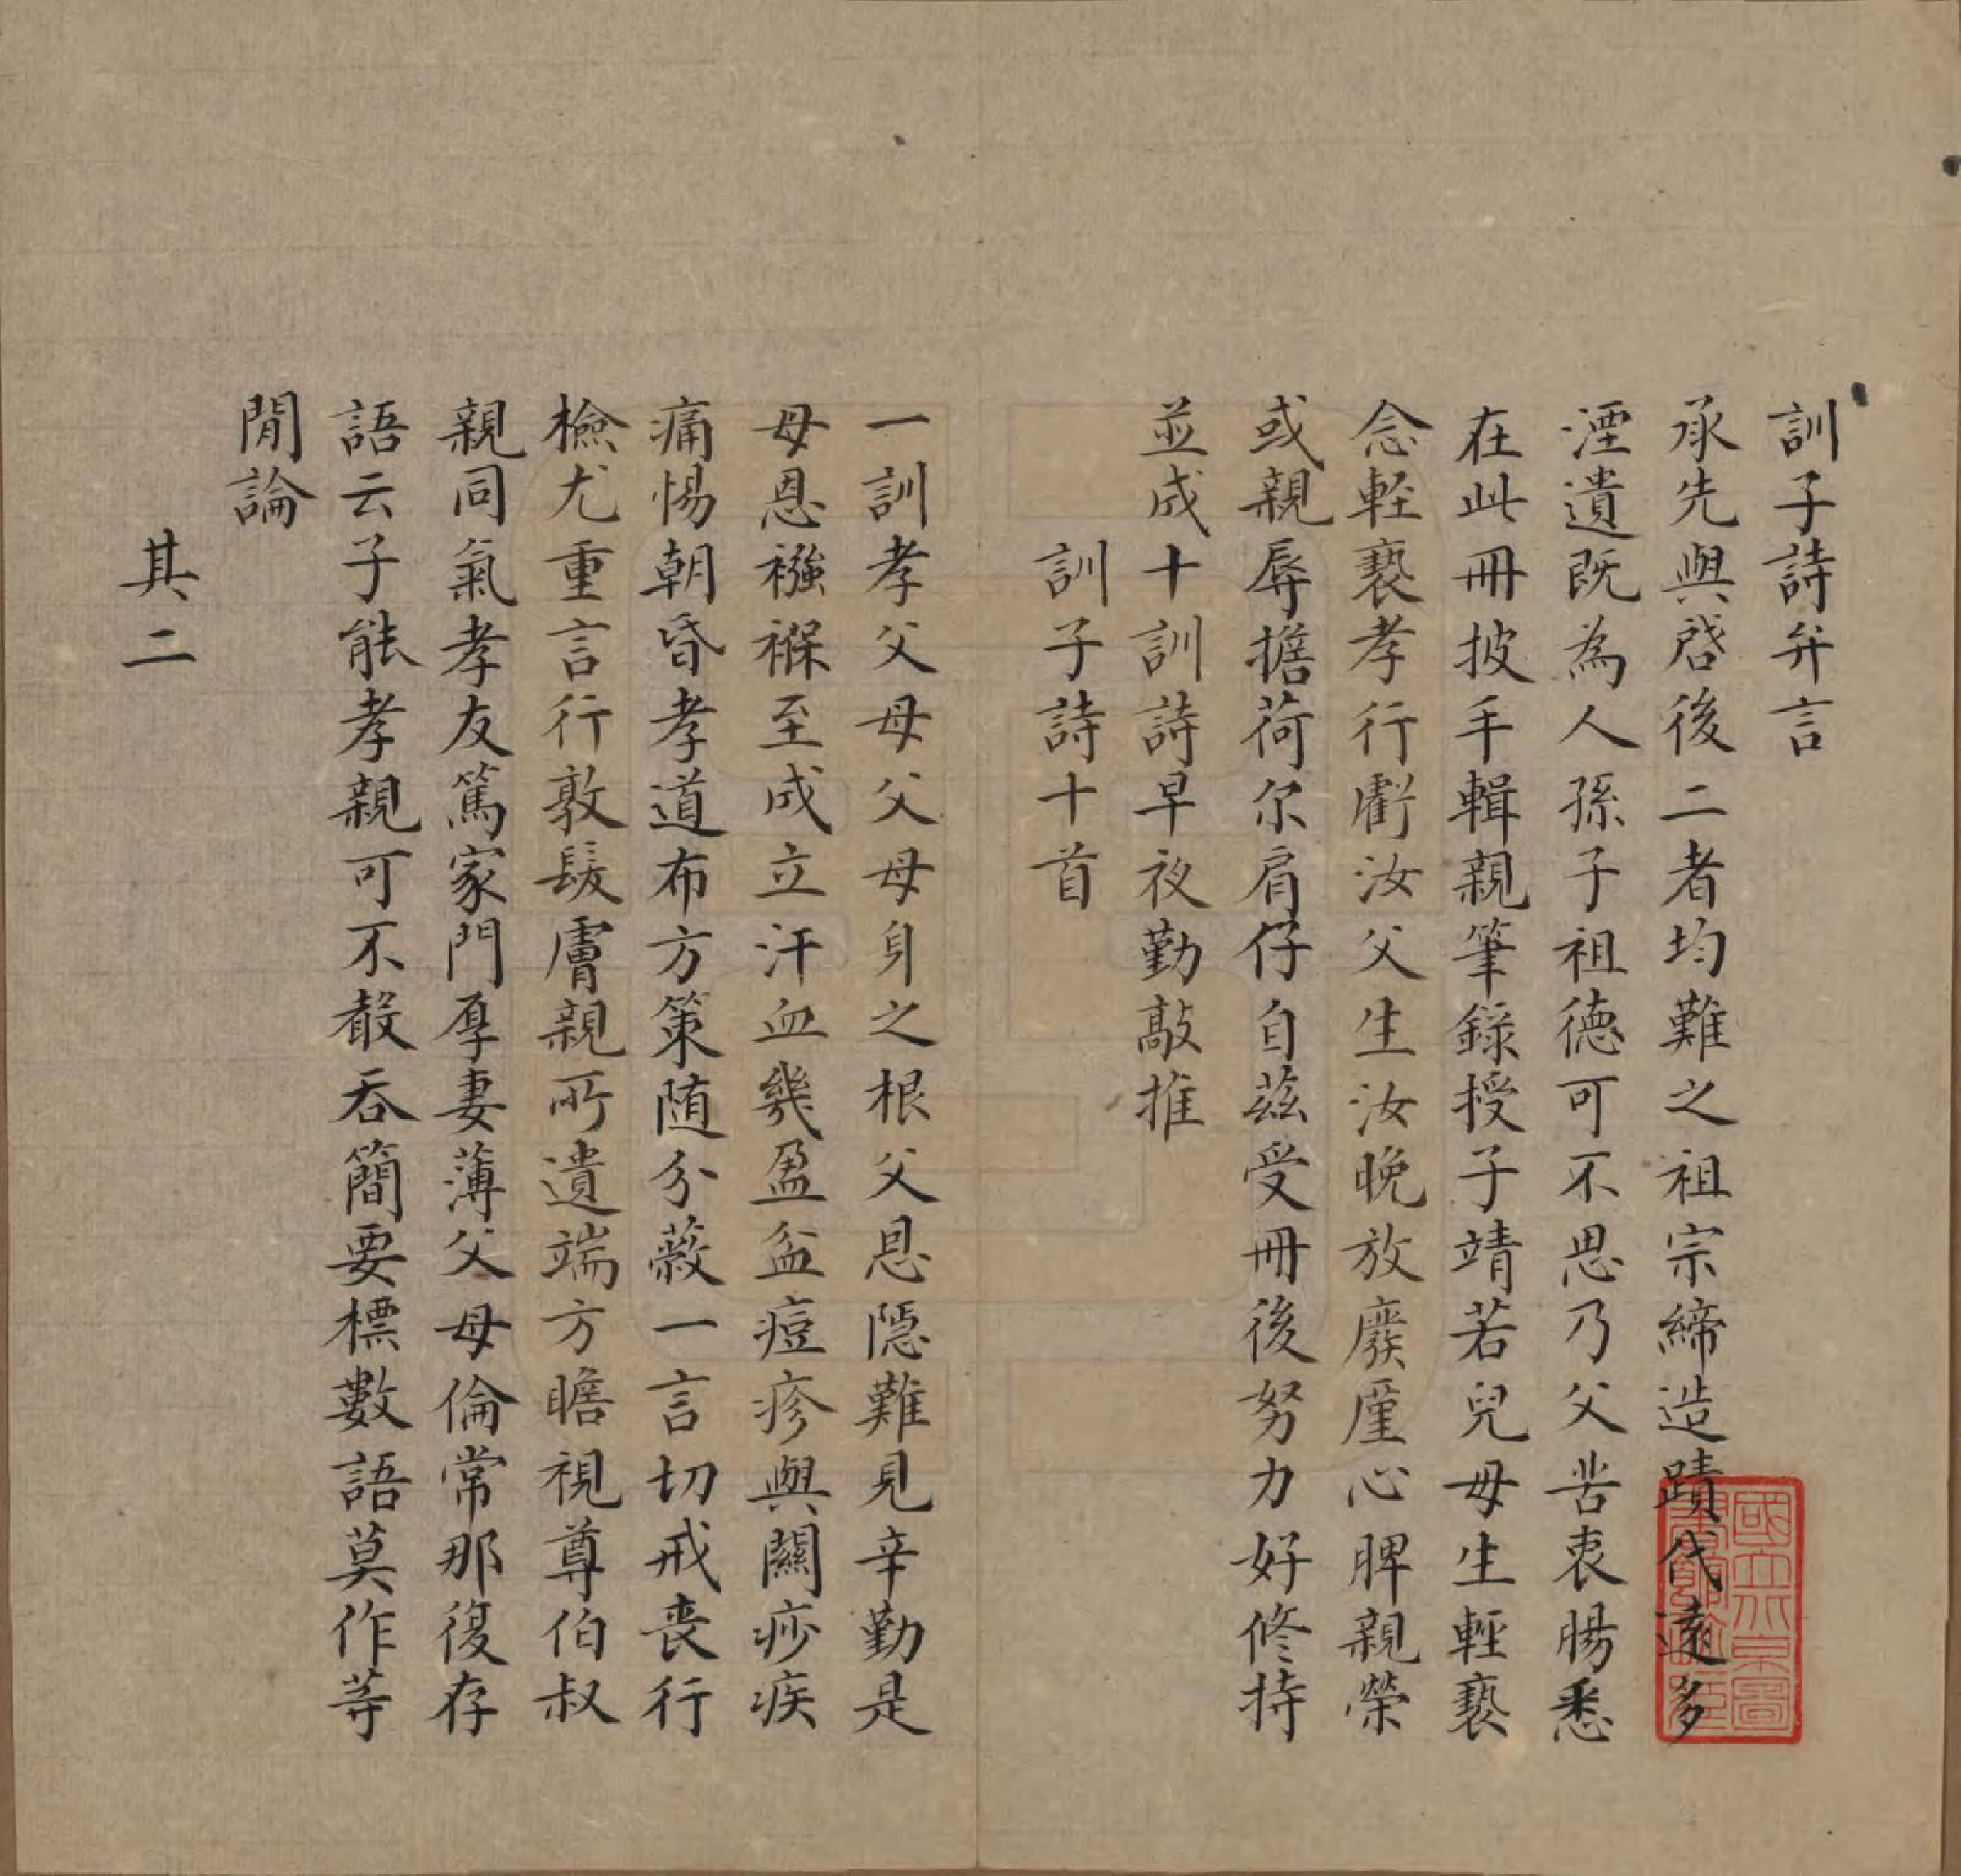 訓子詩弁言
承先與啓後二者均難之祖宗締造蹟代遠多
湮遺既為人孫子祖德可不思乃父苦衷腸悉
在此冊披手輯親筆錄授子靖若兒母生輕褻
念輊褻孝行虧汝父生汝晚放廢廑心脾親榮
或親辱擔荷尔肩仔自茲受冊後努力好修持
並成十訓詩早夜勤敲推
訓子詩十首
一訓孝父母父母身之根父恩隱難見辛勤是
母恩襁褓至成立汗血幾盈盆痘疹與關痧疾
痛惕朝昏孝道布方策随分蓺一言切戒丧行
檢尤重言行敦髮膚親所遺端方瞻視尊伯叔
親同氣孝友篤家門厚妻薄父母倫常那復存
語云子能孝親可不散吞簡要標數語莫作等
閒論
其二